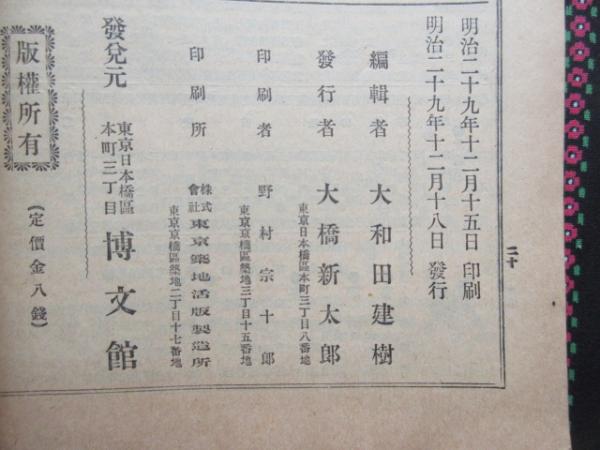 明治二十九年十二月十五日 印刷
明治二十九年十二月十八日 發行
編輯者 大和田建樹
發行者 大橋新太郎
東京日本橋區本町三丁目八番地
印刷者 野村宗十郎
東京京橋區築地三丁目十五番地
印刷所 株式會社東京築地活版製造所
東京京橋區築地二丁目十七番地
發兌元 東京日本橋區本町三丁目 博文館
(定價金八錢)
版權所有